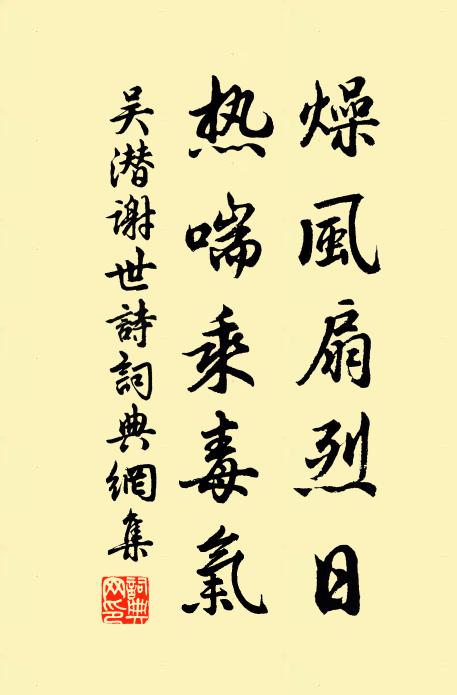 燥風扇烈日
热喘乘毒氣
吴潜谢世詩詞典網集
詞典网印